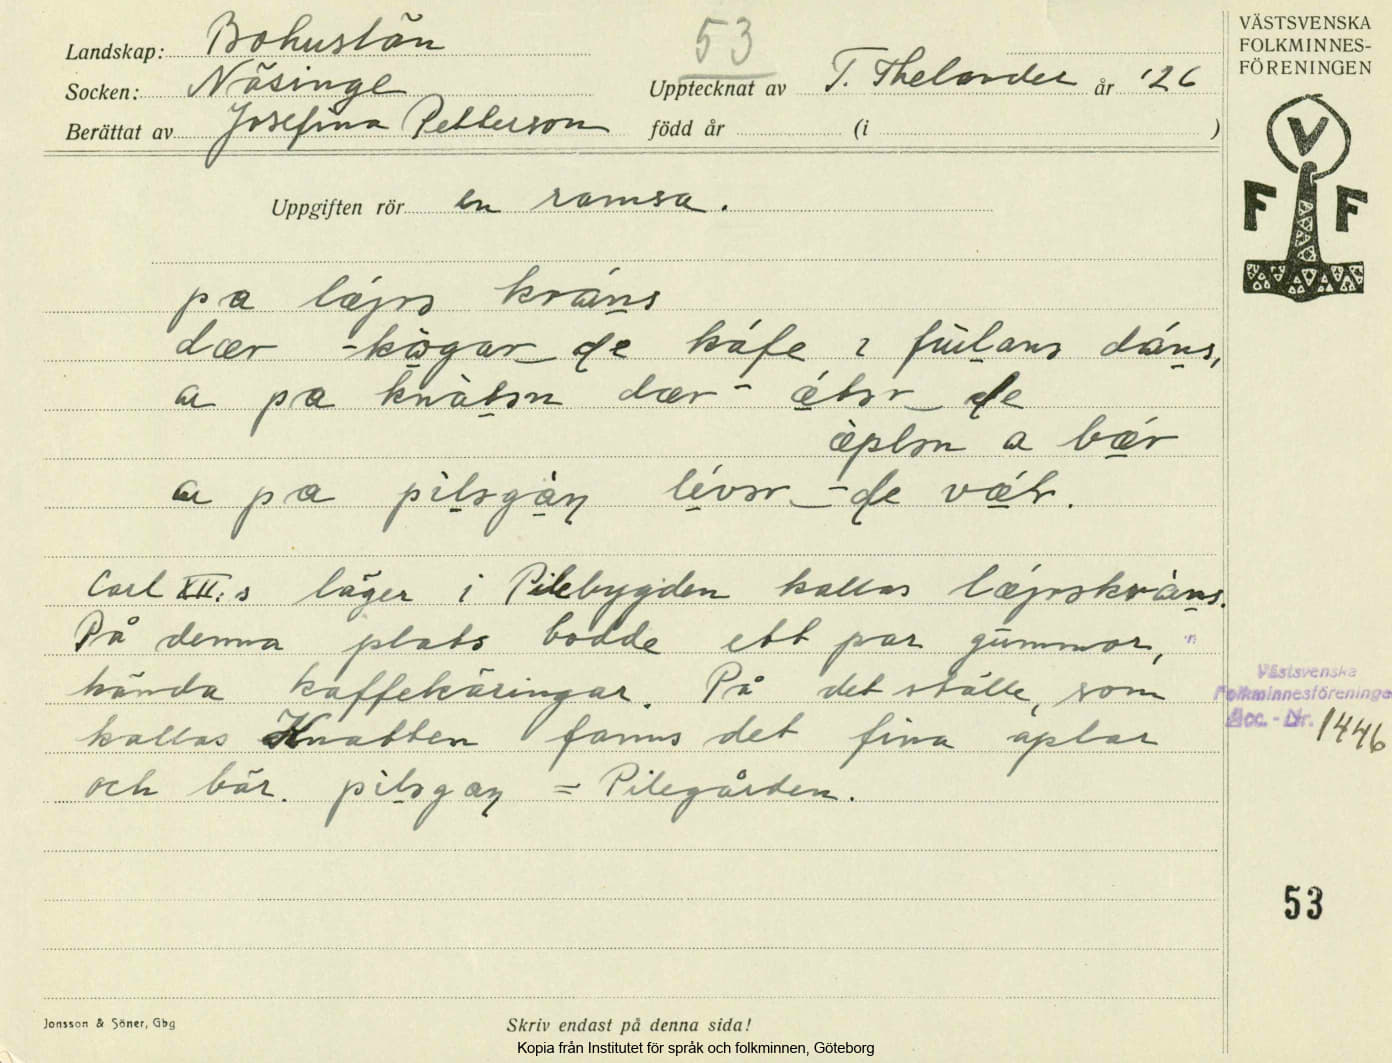 Landskap: Bohuslän
Socken: Näsinge
Berättat av Josefina Petterson
53
Upptecknat av T. Thelander år '26
född år (i )
Uppgiften rör en ramsa.
pa læjrs kráns
dær -kògar de káfe i fúlans dáns,
a pa knàtsn dær- ætsr de
àplsn a bær
a pa pìlsgàŋ lévsr - de væl.
Carl XII:s läger i Pilebygden kallas læjrskràns.
På denna plats bodde ett par gummor,
kända kaffekäringar. På det ställe, som
kallas Knatten fanns det fina äplar
och bär. pilsgaŋ = Pilegården.
VÄSTSVENSKA
FOLKMINNES-
FÖRENINGEN
V
F F
Västsvenska
Folkminnesföreningen
Acc. - Nr. 1446
53
Jonsson & Söner, Gbg
Skriv endast på denna sida!
Kopia från Institutet för språk och folkminnen, Göteborg